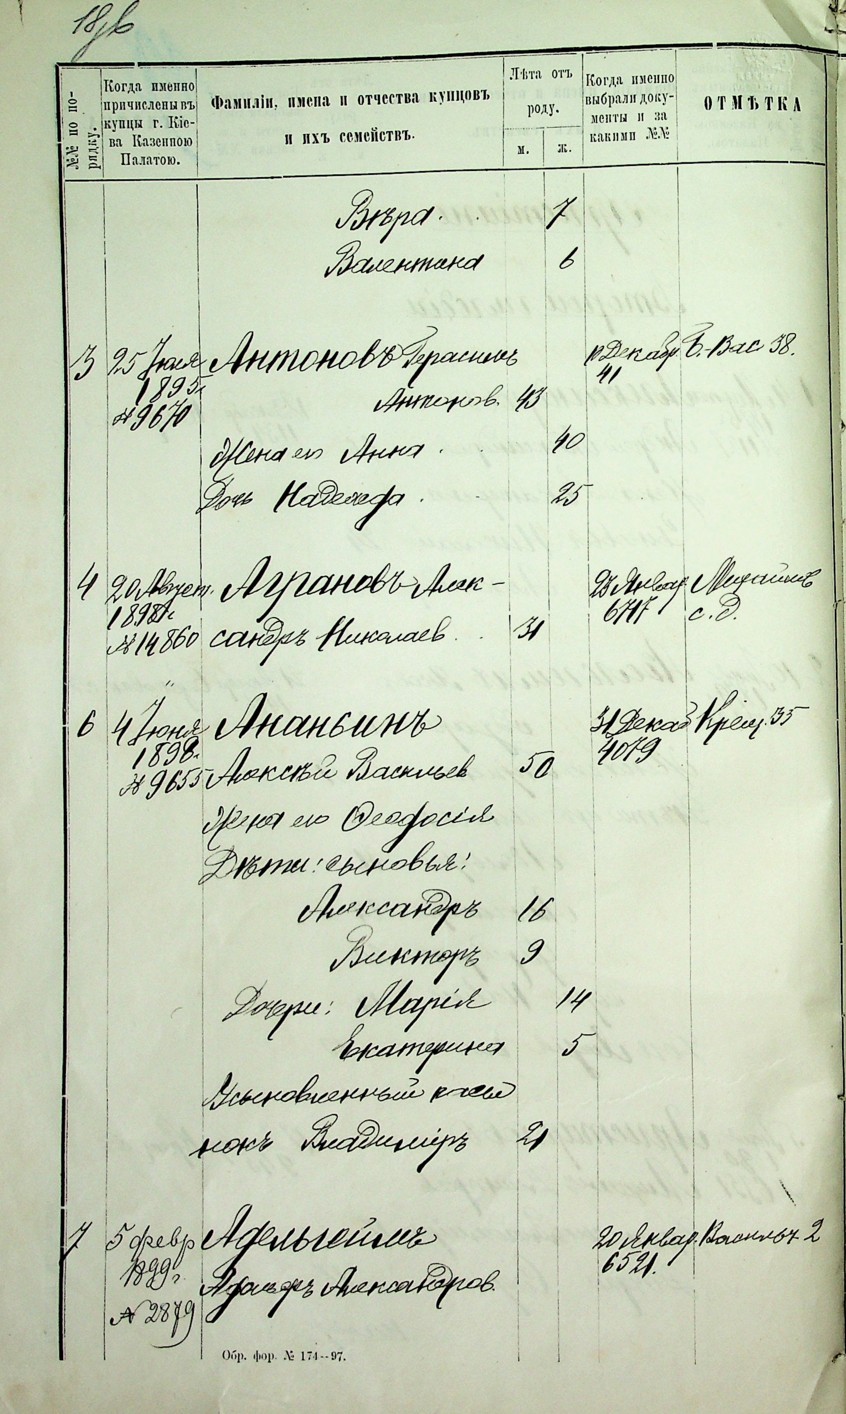 №№ по по-
рядку.
Когда именно
причислены въ
купцы г. Кіе-
ва Казенною
Палатою.
Фамиліи, имена и отчества купцовъ
и ихъ семействъ.
Лѣта отъ
роду.
м. ж.
Когда именно
выбрали доку-
менты и за
какими №№
ОТМѢТКА
Вѣра 7
Валентина 6
3 25 Іюля Антоновъ Герасимъ Декабр Б.-Вас 38.
1895 г. 41
Антонов. 43
№ 9670
Жена его Анна 40
Дочь Надежда 25
4 20 Август. Аграновъ Алек- 23 Январ Михайловъ
1898 г. 6747 с. д.
№ 14860 сандръ Николаев. 31
6 4 Іюня Ананьинъ 31 Декаб Крещ. 35
1898 г. 4079
№ 9655 Алексѣй Васильев 50
Жена его Ѳеодосія
Дѣти: сыновья:
Александръ 16
Викторъ 9
Дочери: Марія 14
Екатерина 5
Усыновленный
Владиміръ 21
7 5 февр Адельгеймъ 20 Январ. Васильк 2
1899 г. 6521.
Адольфъ Александров.
№ 2879
Обр. фор. № 174--97.